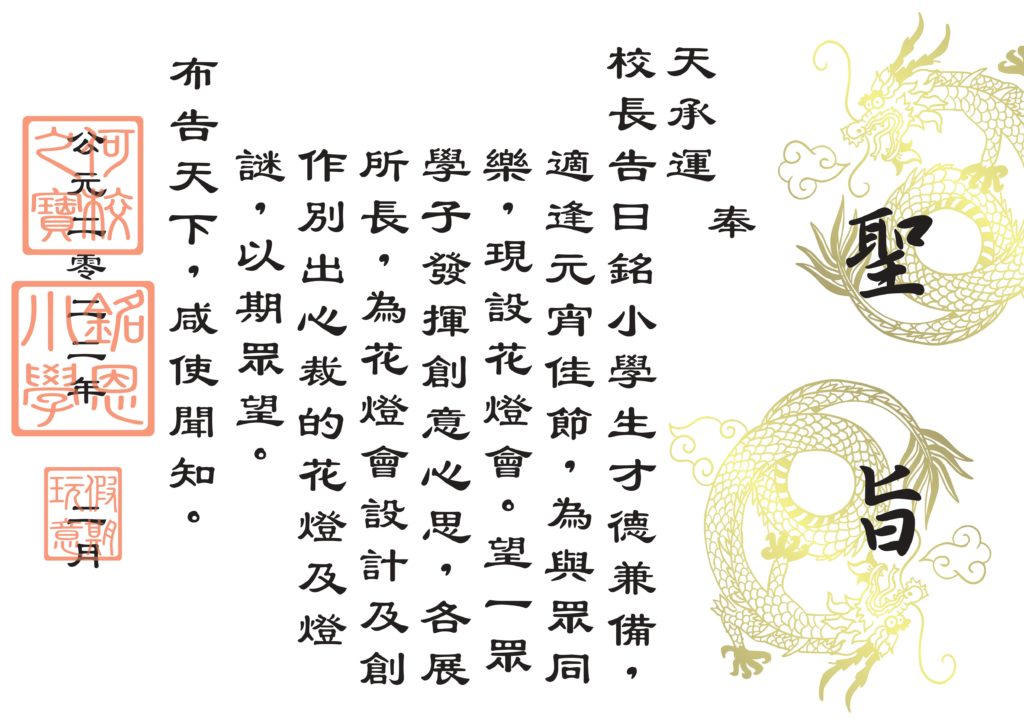 聖旨
奉
天承運
校長告曰銘小學生才德兼備，
適逢元宵佳節，為與眾同
樂，現設花燈會。望一眾
學子發揮創意心思，各展
所長，為花燈會設計及創
作別出心裁的花燈及燈
謎，以期眾望。
布告天下，咸使聞知。
公元二零二二年二月
何校之寶
銘恩小學
假期玩意